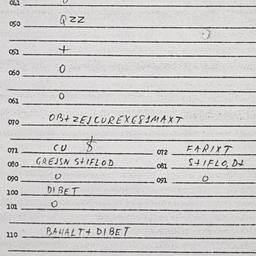 041 0
050 QZZ
051 +
060 0
061 0
070 OB+ZEJCUREXC81MAXT
071 CU $ 072 FARIXT
080 GREJSN S+IFLOD 081 S+IFLO, D+
090 0 091 0
100 DIBET
101 0
110 BAHALT+ DIBET